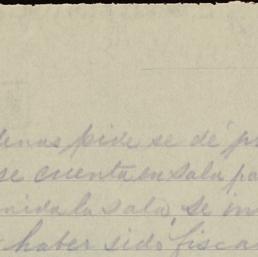 pide se dé
se cuenta en sala pa
nida la sala, se in
haber sido fisca